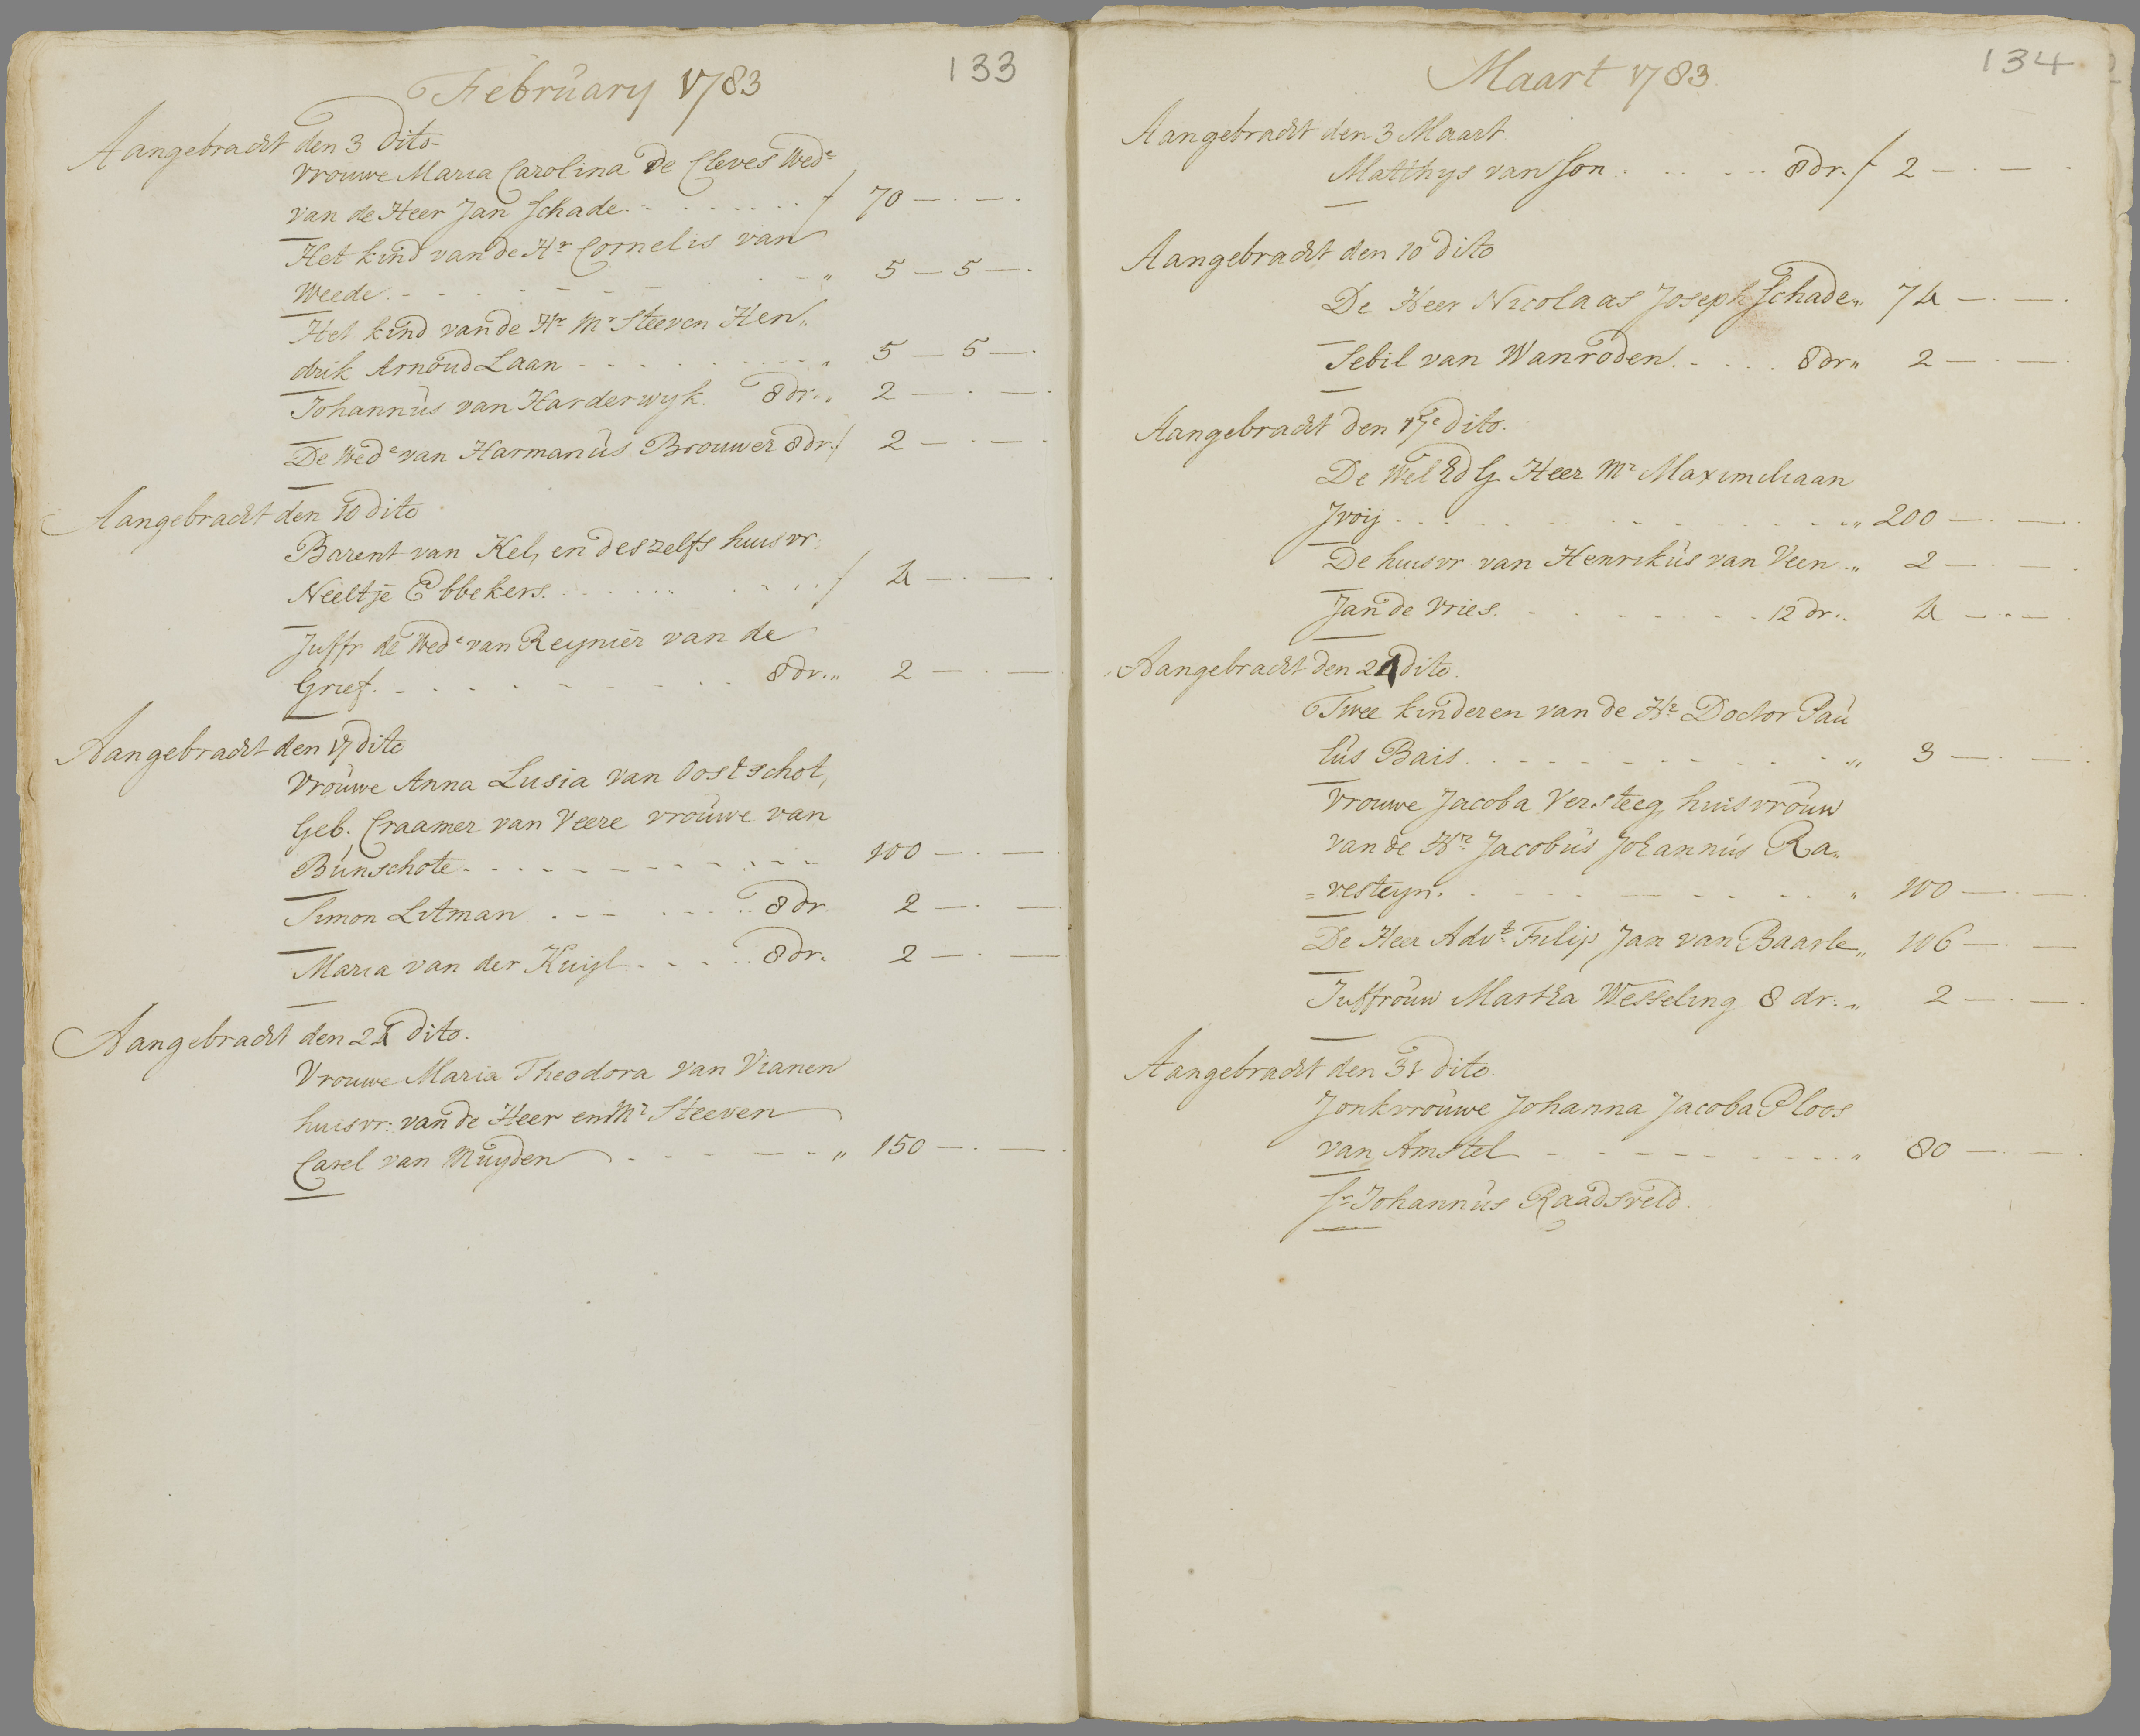 133
February 1783
Aangebracht den 3 dito
Vrouwe Maria Carolina de Cleves Wed.e
van de Heer Jan Schade. - . . . . . . ƒ 70 — . — .
Het kind van de H.r Cornelis van
Weede. - - . . - - - . . - „ 5 — 5 — .
Het kind van de H.r M.r Steeven Hen„
drik Arnoud Laan - - . . . . . - - - „ 5 — 5 — .
Johannus van Harderwyk. 8 dr. „ 2 — . — .
De Wed.e van Harmanus Brouwer 8 dr. ƒ 2 — . — .
Aangebracht den 10 dito
Barent van Kel, en deszelfs huisvr.
Neeltje Ebbekers. . . . . . . . . ƒ 4 — . — .
Juffr de Wed.e van Reynier van de
Grief. - . . . . . . . . 8 dr. „ 2 — . —
Aangebracht den 17 dito
Vrouwe Anna Lusia van Oostschot,
Geb. Craamer van Veere vrouwe van
Bunschote. . . . - - - - . . . - 100 — . —
Simon Litman . - - . . . . 8 dr. 2 — . —
Maria van der Kuijl . - - . . 8 dr. 2 — . —
Aangebracht den 24 dito.
Vrouwe Maria Theodora van Vianen
huisvr: van de Heer en M.r Steeven
Carel van Muyden - - - - — - „ 150 — . — .
134
Maart 1783.
Aangebracht den 3 Maart
Matthys van Son . . . . . . 8 dr. ƒ 2 — . — .
Aangebracht den 10 dito
De Heer Nicolaas Joseph Schade „ 74 — . — .
Sebil van Wanroden. - . . . 8 dr „ 2 — . — .
Aangebracht den 17.e dito.
De Wel Ed G Heer M.r Maximiliaan
Jvoij - . . . . . . . . . . „ 200 — . — .
De huisvr van Henrikus van Veen . „ 2 — . — .
Jan de Vries. - . . . . . - . 12 dr. . 4 — . — .
Aangebracht den 24 dito.
Twee kinderen van de H.r Doctor Pau
lus Bais . . - - - . . . . . - „ 3 — . — .
Vrouwe Jacoba Versteeg, huisvrouw
van de H.r Jacobus Johannus Ra„
= vesteyn. . . . . . . . . . „ 100 — . — .
De Heer Adv.t Filip Jan van Baarle „ 106 — . —
Juffrouw Martha Wesseling 8 dr. „ 2 — . — .
Aangebracht den 31 dito.
Jonkvrouwe Johanna Jacoba Ploos
van Amstel - - - - - - . . . . „ 80 — . — .
S.r Johannus Raadsveld.